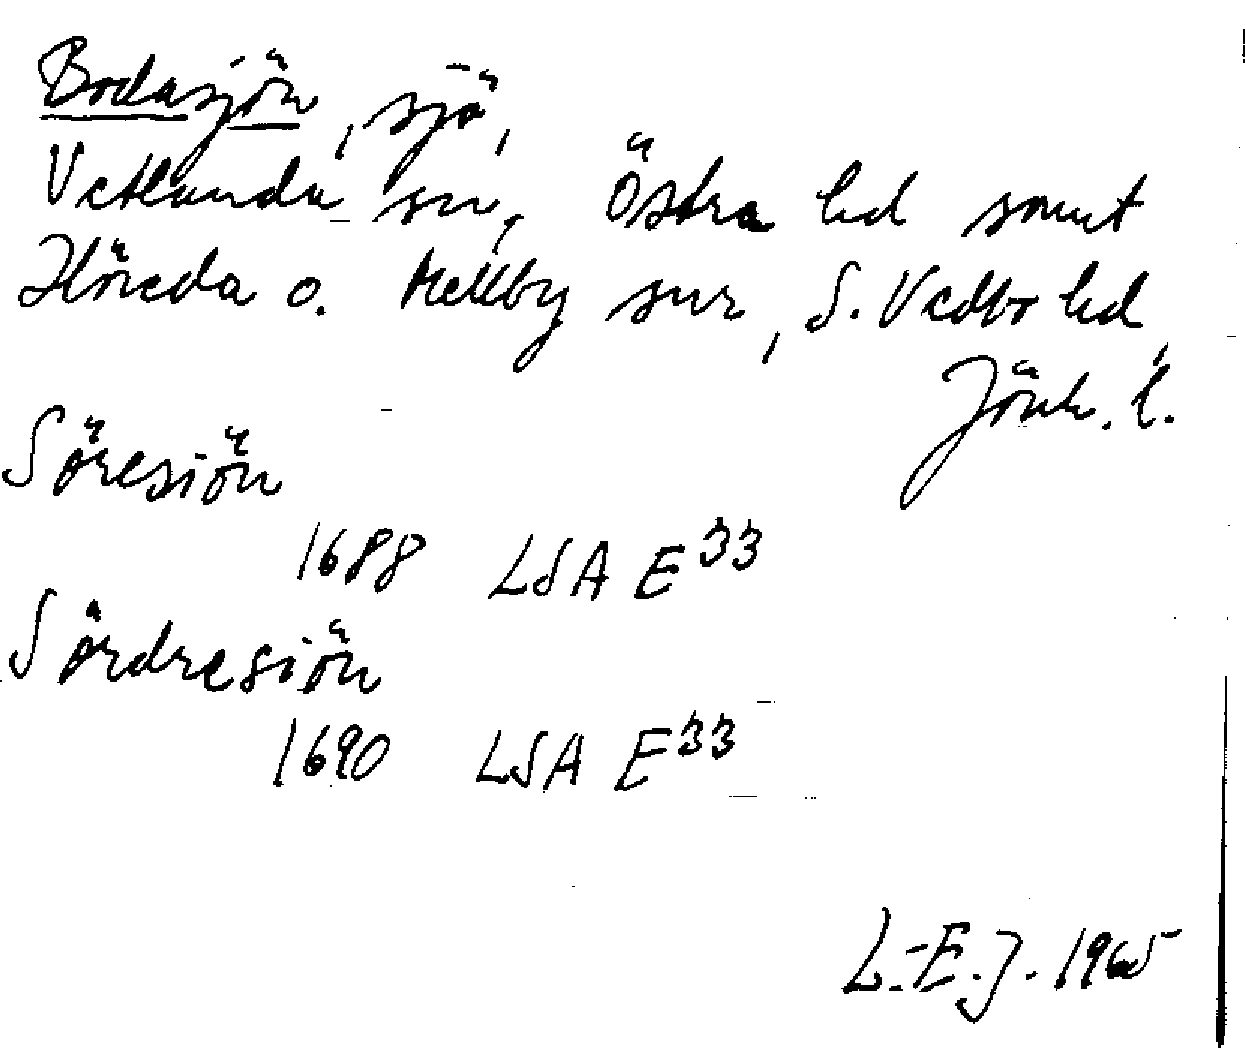 Bodasjön, sjö,
Vetlanda sn, Östra hd samt
Höreda o. Mellby snr, S. Vedbo hd,
Jönk. l.
Söresiön
1688 LSA E33
Sördresiön
1690 LSA E33
L.-E.J. 1965